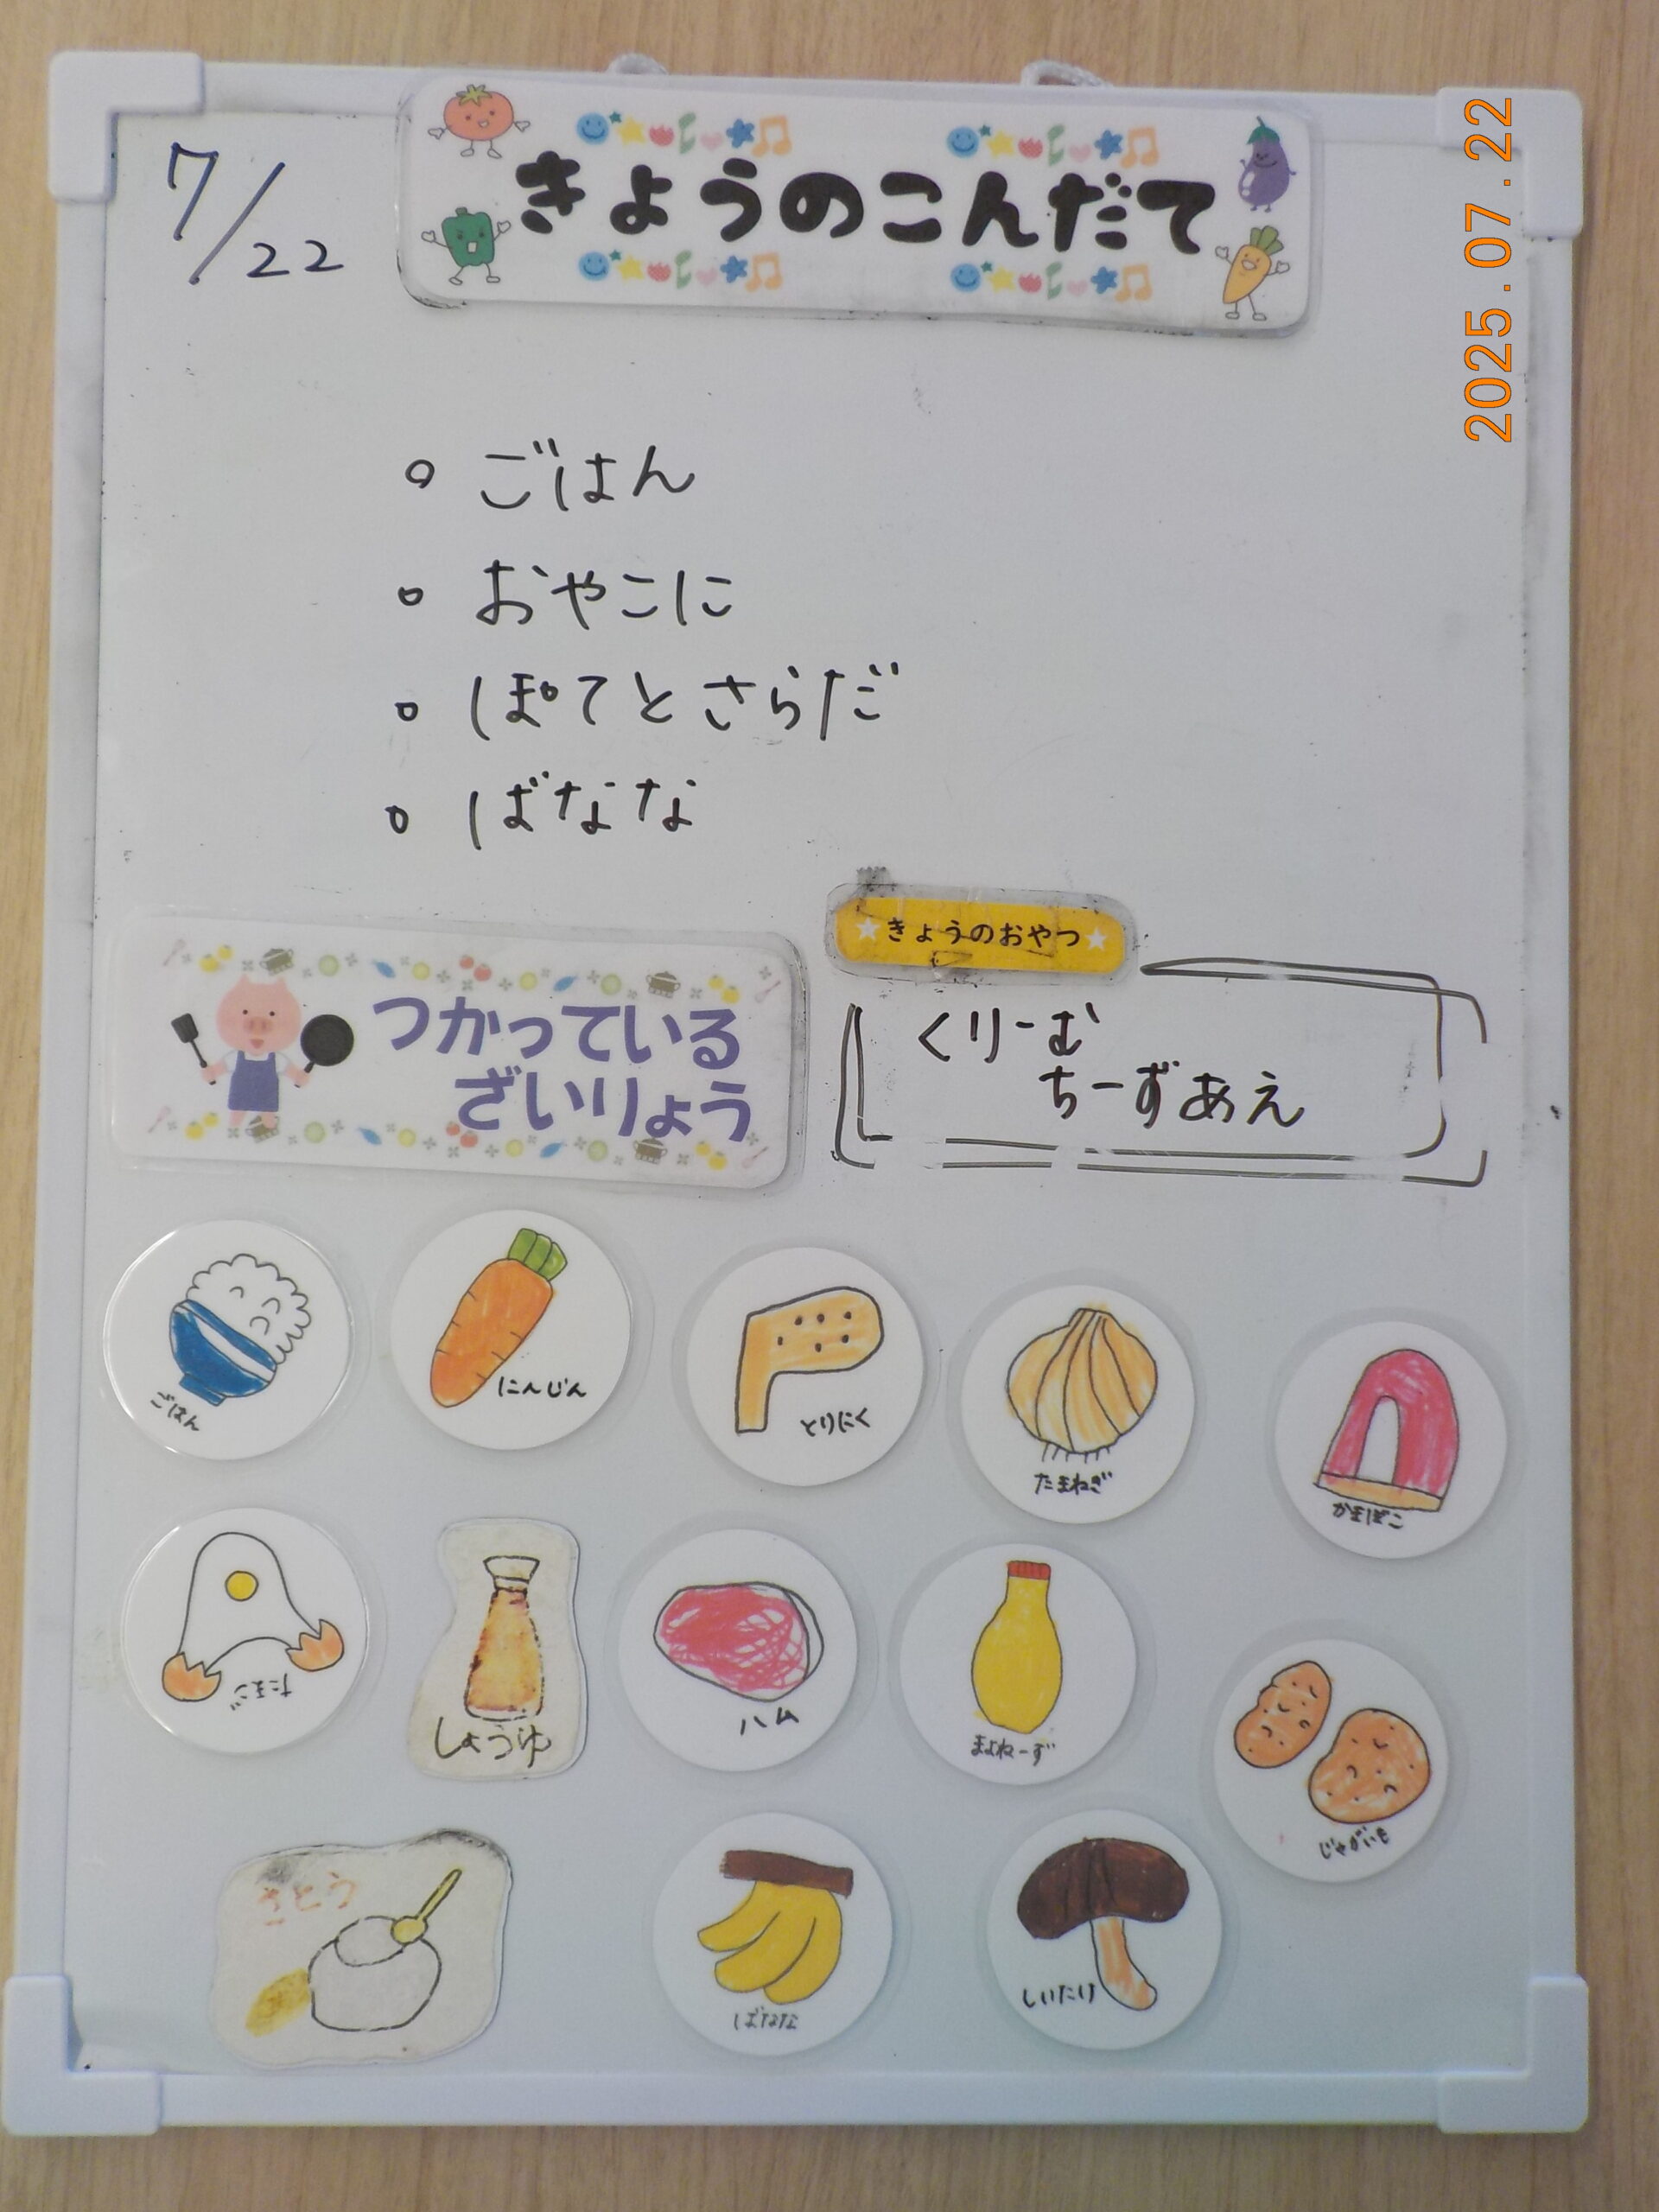 7/22
きょうのこんだて
2025.07.22
。ごはん
。おやこに
。ぽてとさらだ
。ばなな
きょうのおやつ
くりーむ
ちーずあえ
つかっている
ざいりょう
ごはん
にんじん
とりにく
たまねぎ
かまぼこ
たまご
しょうゆ
ハム
まよねーず
じゃがいも
さとう
ばなな
しいたけ